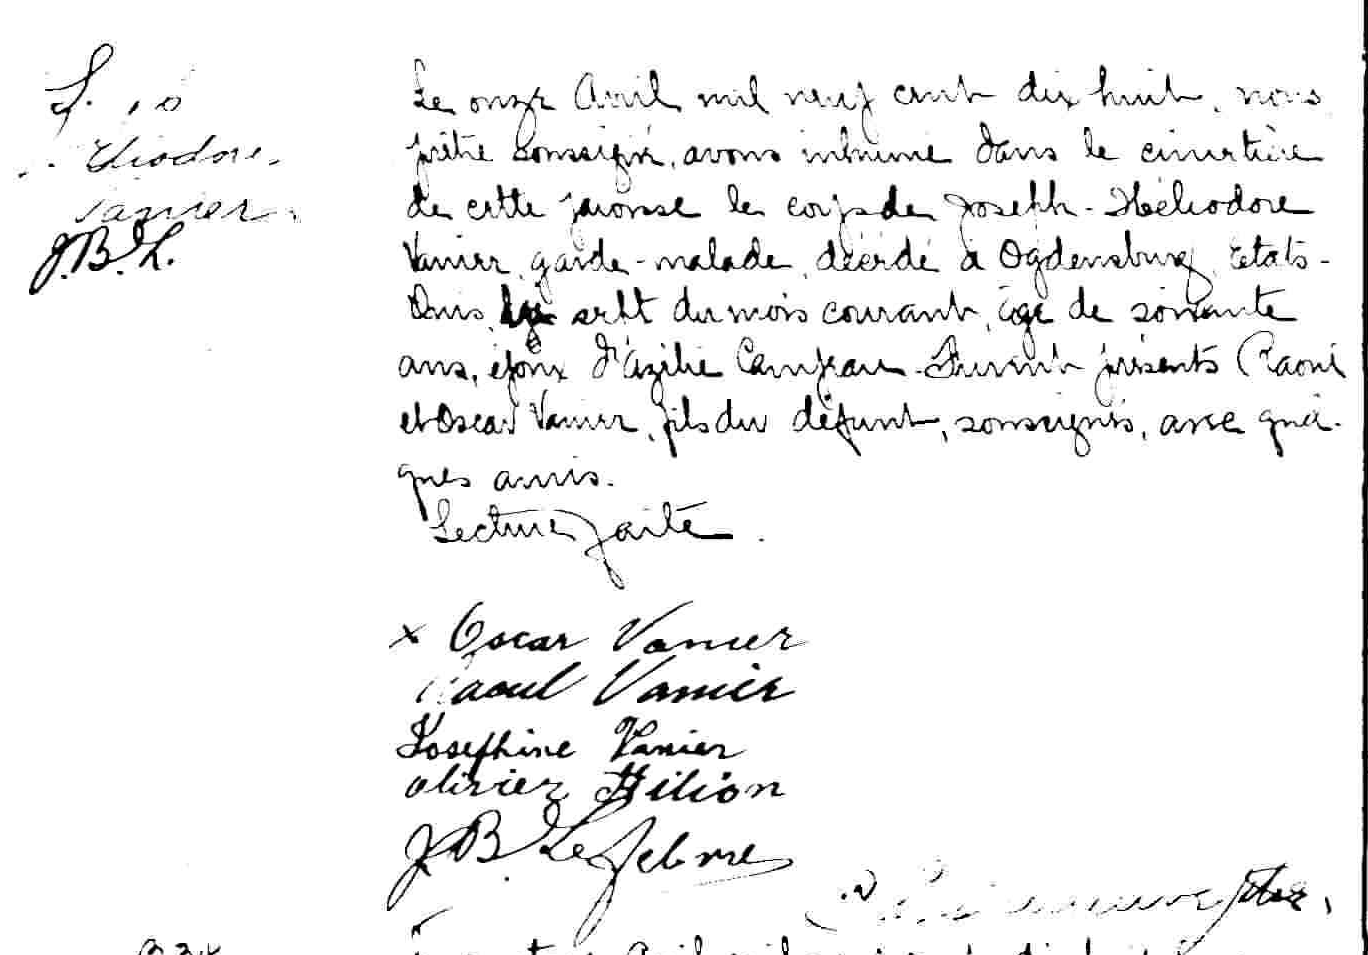 S.
Héliodore
Vanier
J.B.L.
Le onze Avril mil neuf cent dix huit, nous
prêtre soussigné, avons inhumé dans le cimetière
de cette paroisse le corps de Joseph-Héliodore
Vanier, garde-malade, décédé à Ogdensburg, Etats-
Unis, le sept du mois courant, âgé de soixante
ans, époux d'Azilie Campeau. Furent présents Raoul
et Oscar Vanier, fils du défunt, soussignés, avec quel-
ques amis.
Lecture faite.
x Oscar Vanier
Raoul Vanier
Josephine Vanier
Olivier Filion
J. B. Lefebvre
ptre,